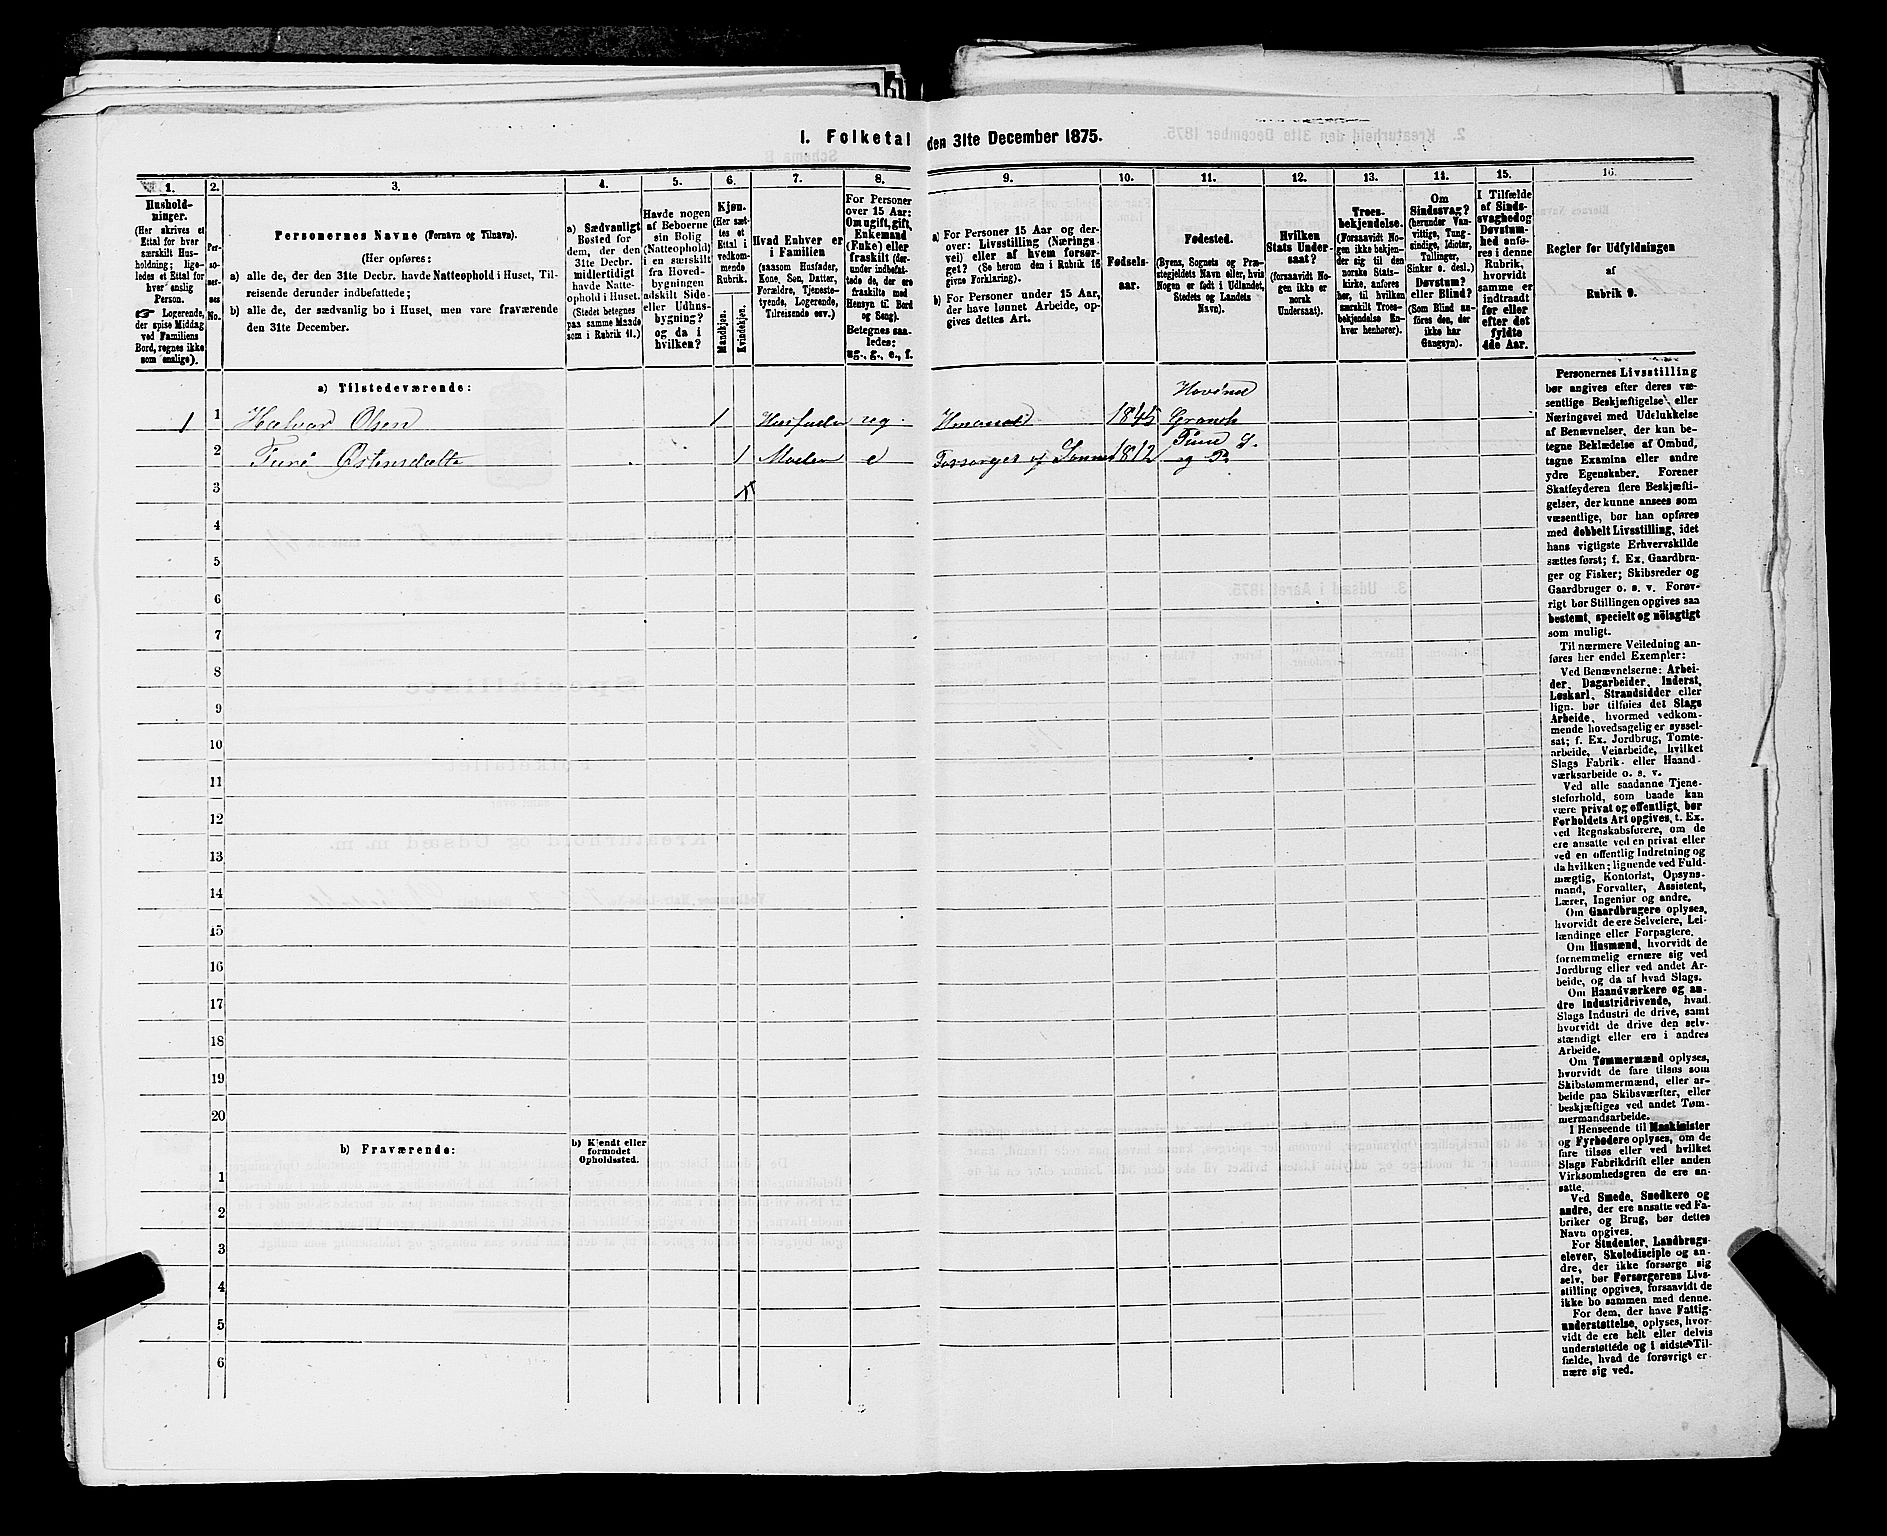 1. Folketal den 31te December 1875.
1.
Hushold-
ninger.
(Her skrives et
Ettal for hver
særskilt Hus-
holdning; lige-
ledes et Ettal for
hver enslig
Person.
☞ Logerende,
der spise Middag
ved Familiens
Bord, regnes ikke
som enslige).
2.
Per-
so-
ner-
nes
No.
3.
Personernes Navne (Fornavn og Tilnavn).
(Her opføres:
a) alle de, der den 31te Decbr. havde Natteophold i Huset, Til-
reisende derunder indbefattede;
b) alle de, der sædvanlig bo i Huset, men vare fraværende
den 31te December.
4.
a) Sædvanligt
Bosted for
dem, der den
31te Decbr.
midlertidigt
havde Natte-
ophold i Huset.
(Stedet betegnes
paa samme Maade
som i Rubrik 11.)
5.
Havde nogen
af Beboerne
sin Bolig
(Natteophold)
i en særskilt
fra Hoved-
bygningen
adskilt Side-
eller Udhus-
bygning?
og da i
hvilken?
6.
Kjøn.
(Her sæt-
tes et
Ettal i
vedkom-
mende
Rubrik.
Mandkjøn.
Kvindekjøn.
7.
Hvad Enhver er
i Familien
(saasom Husfader,
Kone, Søn, Datter,
Forældre, Tjeneste-
tyende, Logerende,
Tilreisende osv.)
8.
For Personer
over 15 Aar:
Om ugift, gift,
Enkemand
(Enke) eller
fraskilt (der-
under indbefat-
tede de, der ere
fraskilte med
Hensyn til Bord
og Seng).
Betegnes saa-
ledes:
ug., g., e., f.
9.
a) For Personer 15 Aar og der-
over: Livsstilling (Nærings-
vei) eller af hvem forsør-
get? (Se herom den i Rubrik 16
givne Forklaring).
b) For Personer under 15 Aar,
der have lønnet Arbeide, op-
gives dettes Art.
10.
Fødsels-
aar.
11.
Fødested.
(Byens, Sognets og Præ-
stegjeldets Navn eller, hvis
Nogen er født i Udlandet,
Stedets og Landets
Navn).
12.
Hvilken
Stats Under-
saat?
(forsaavidt No-
gen ikke er
norsk
Undersaat).
13.
Troes-
bekjendelse.
(Forsaavidt No-
gen ikke bekjen-
der sig til den
norske Stats-
kirke, anføres
her, til hvilken
særskilt Troes-
bekjendelse En-
hver henhører).
14.
Om
Sindssvag?
(herunder Van-
vittige, Tung-
sindige, Idioter,
Tullinger,
Sinker o. desl.)
Døvstum?
eller Blind?
(Som Blind an-
føres den, der
ikke har
Gangsyn).
15.
I Tilfælde
af Sinds-
svaghedog
Døvstum-
hed anfø-
res i denne
Rubrik,
hvorvidt
samme er
indtraadt
før eller
efter det
fyldte
4de Aar.
16.
Regler for Udfyldningen
af
Rubrik 9.
a) Tilstedeværende:
1 1 Halvor Olsen 1 Husfader ug. 1845 Hovind
Gransh.
2 Turi Østensdatte 1 Moder e Forsørges af Sønnen 1812 Tinn S.
og Pr.
3
4
5
6
7
8
9
10
11
12
13
14
15
16
17
18
19
20
b) Fraværende:
b) Kjendt eller
formodet
Opholdssted.
1
2
3
4
5
6
Personernes Livsstilling
bør angives efter deres væ-
sentlige Beskjæftigelse eller
Næringsvei med Udelukkelse
af Benævnelser, der kun be-
tegne Beklædelse af Ombud,
tagne Examina eller andre
ydre Egenskaber. Forener
Skatteyderen flere Beskjæfti-
gelser, der kunne ansees som
væsentlige, bør han opføres
med dobbelt Livsstilling, idet
hans vigtigste Erhvervskilde
sættes først; f. Ex. Gaardbru-
ger og Fisker; Skibsreder og
Gaardbruger o. s. v. Forøv-
rigt bør Stillingen opgives saa
bestemt, specielt og nöiagtigt
som muligt.
Til nærmere Veiledning an-
føres her endel Exempler:
Ved Benævnelserne: Arbei-
der, Dagarbeider, Inderst,
Løskarl, Strandsidder eller
lign. bør tilføies det Slags
Arbeide, hvormed vedkom-
mende hovedsagelig er syssel-
sat; f. Ex. Jordbrug, Tomte-
arbeide, Veiarbeide, hvilket
Slags Fabrik- eller Haand-
værksarbeide o. s. v.
Ved alle saadanne Tjene-
steforhold, som baade kan
være privat og offentligt, bør
Forholdets Art opgives, t. Ex.
ved Regnskabsførere, om de
ere ansatte ved en privat eller
ved en offentlig Indretning og
da hvilken; lignende ved Fuld-
mægtig, Kontorist, Opsyns-
mand, Forvalter, Assistent,
Lærer, Ingeniør og andre.
Om Gaardbrugere oplyses,
hvorvidt de ere Selveiere, Lei-
lændinge eller Forpagtere.
Om Husmænd, hvorvidt de
fornemmelig ernære sig ved
Jordbrug eller ved andet Ar-
beide, og da af hvad Slags.
Om Haandværkere og an-
dre Industridrivende, hvad
Slags Industri de drive, samt
hvorvidt de drive den selv-
stændigt eller ere i andres
Arbeide.
Om Tømmermænd oplyses,
hvorvidt de fare tilsøs som
Skibstømmermænd, eller ar-
beide paa Skibsværfter, eller
beskjæftiges ved andet Tøm-
mermandsarbeide.
I Henseende til Maskinister
og Fyrbødere oplyses, om de
fare tilsøs eller ved hvilket
Slags Fabrikdrift eller anden
Virksomhedsgren de ere an-
satte.
Ved Smede, Snedkere og
andre, der ere ansatte ved Fa-
briker og Brug, bør dettes
Navn opgives.
For Studenter, Landbrugs-
elever, Skoledisciple og an-
dre, der ikke forsørge sig
selv, bør Forsørgerens Livs-
stilling opgives, forsaavidt de
ikke bo sammen med denne.
For dem, der have Fattig-
understøttelse, oplyses, hvor-
vidt de ere helt eller delvis
understøttede og i sidste Til-
fælde, hvad de forøvrigt er-
nære sig ved.